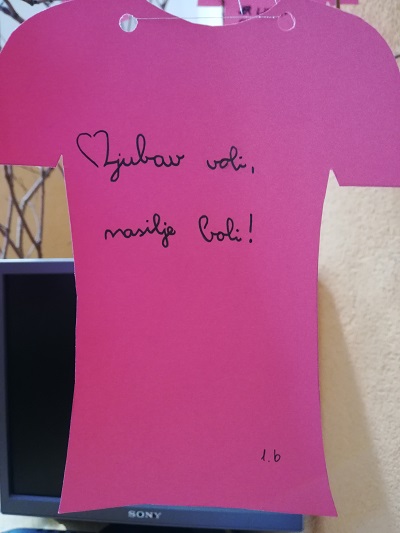 Ljubav voli,
nasilje boli!
1.b
SONY